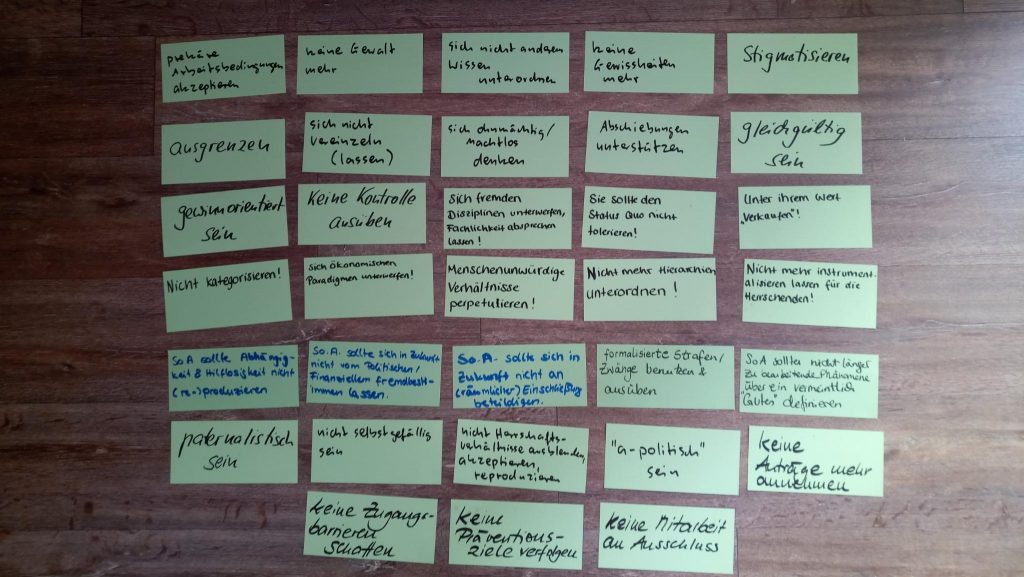 prekäre
Arbeitsbedingungen
akzeptieren
keine Gewalt
mehr
sich nicht anderem
Wissen
unterordnen
keine
Gewissheiten
mehr
Stigmatisieren
ausgrenzen
sich nicht
vereinzeln
(lassen)
sich ohnmächtig/
machtlos
denken
Abschiebungen
unterstützen
gleichgültig
sein
gewinnorientiert
sein
Keine Kontrolle
ausüben
Sich fremden
Disziplinen unterwerfen,
Fachlichkeit absprechen
lassen!
Sie sollte den
Status Quo nicht
tolerieren!
Unter ihrem Wert
„verkaufen"!
Nicht kategorisieren!
Sich ökonomischen
Paradigmen unterwerfen!
Menschenunwürdige
Verhältnisse
perpetuieren!
Nicht mehr Hierarchien
unterordnen!
Nicht mehr instrument-
alisieren lassen für die
Herrschenden!
So A sollte Abhängig-
keit & Hilflosigkeit nicht
(re-)produzieren
So. A. sollte sich in Zukunft
nicht vom Politischen/
Finanziellen fremdbest-
immen lassen.
So. A. sollte sich in
Zukunft nicht an
(räumlicher) Einschließung
beteiligen.
formalisierte Strafen/
Zwänge benutzen &
ausüben
So A sollte nicht länger
zu bearbeitende Phänomene
über ein vermeintlich
"Gutes" definieren
paternalistisch
sein
nicht selbstgefällig
sein
nicht Herrschafts-
verhältnisse ausblenden,
akzeptieren,
reproduzieren
"a-politisch"
sein
keine
Anträge mehr
annehmen
keine Zugangs-
barrieren
schaffen
keine
Präventions-
ziele verfolgen
keine Mitarbeit
an Ausschluss